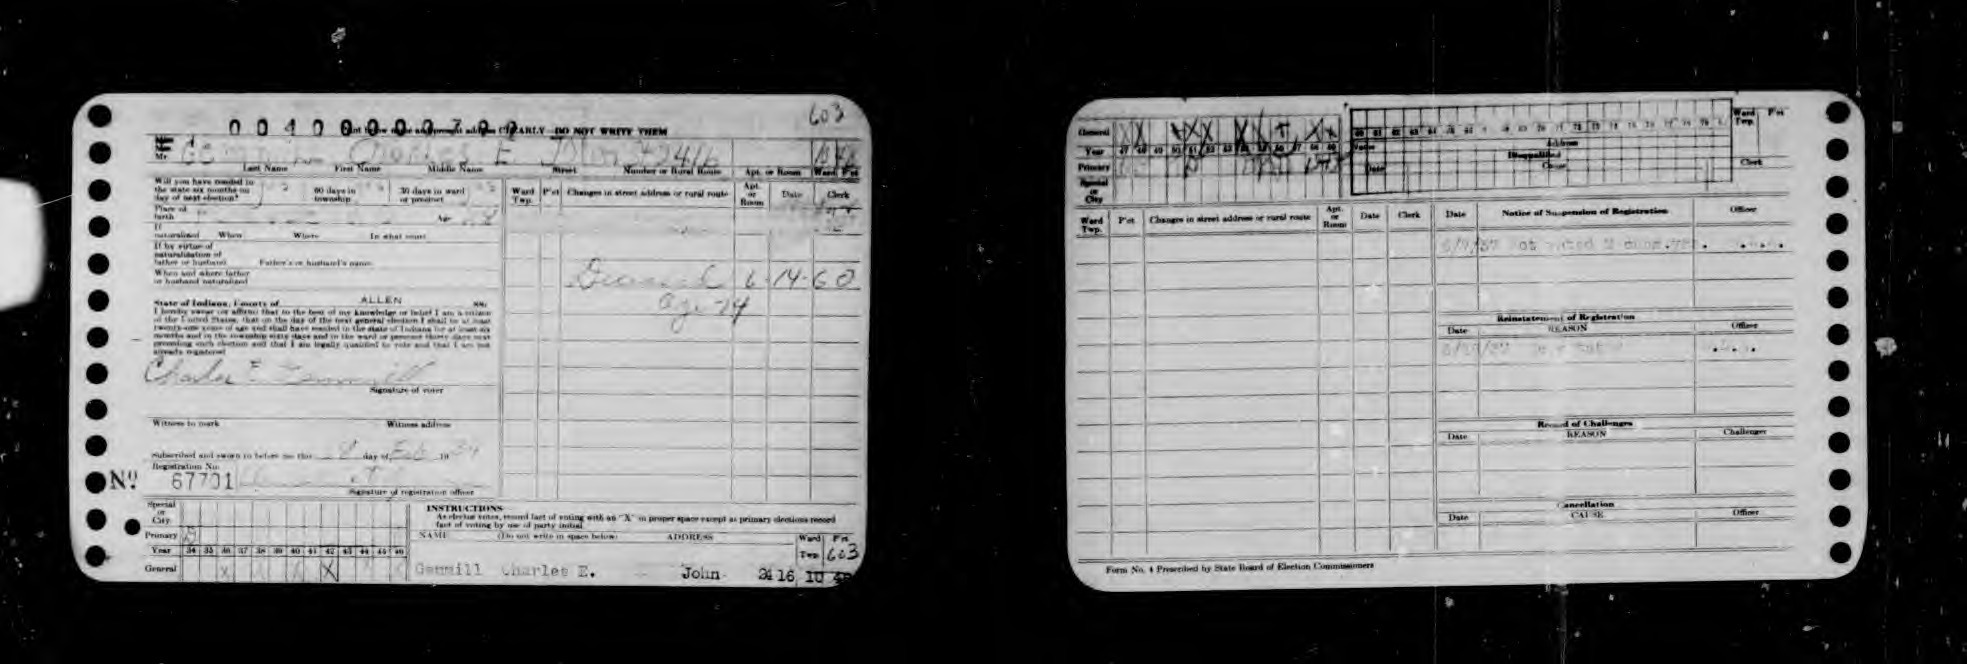 603
Print below name and present address CLEARLY—DO NOT WRITE THEM
Mr. Charles E John 2416
Last Name First Name Middle Name Street Number or Rural Route Apt. or Room Ward Pct
Will you have resided in the state six months on day of next election? 60 days in township 30 days in ward or precinct
Ward Twp. P'ct Changes in street address or rural route Apt. or Room Date Clerk
Place of birth
If naturalized When Where In what court
If by virtue of naturalization of father or husband Father's or husband's name
When and where father or husband naturalized
Deceased 6-14-60
Age-74
State of Indiana, County of ALLEN ss:
I hereby swear (or affirm) that to the best of my knowledge or belief I am a citizen
of the United States, that on the day of the next general election I shall be at least
twenty-one years of age and shall have resided in the state of Indiana for at least six
months and in the township sixty days and in the ward or precinct thirty days next
preceding such election and that I am legally qualified to vote and that I am not
already registered
Charles E Gemmill
Signature of voter
Witness to mark Witness address
Subscribed and sworn to before me this 8 day of Feb 1934
Registration No.
No. 67701
Signature of registration officer
Special or City
Primary D
Year 34 35 36 37 38 39 40 41 42 43 44 45 46
General X X X X X X
INSTRUCTIONS
As elector votes, record fact of voting with an "X" in proper space except at primary elections record
fact of voting by use of party initial
NAME (Do not write in space below) ADDRESS Ward Twp. P'ct
603
Gemmill Charles E. John 2416 10
General
Year 47 48 49 50 51 52 53 54 55 56 57 58 59
Primary
Special or City
Address
Disqualified
Cause
Date
Ward Twp. P'ct
Clerk
Ward Twp. P'ct Changes in street address or rural route Apt. or Room Date Clerk
Date Notice of Suspension of Registration Officer
Not voted 2
Reinstatement of Registration
Date REASON Officer
Record of Challenges
Date REASON Challenger
Cancellation
Date CAUSE Officer
Form No. 4 Prescribed by State Board of Election Commissioners